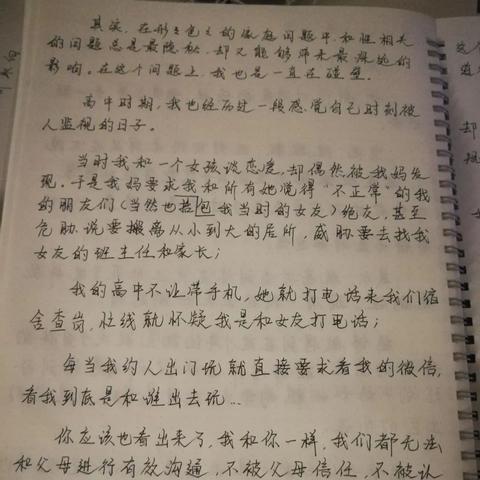 其实，在形形色色的家庭问题中，和性相关
的问题总是最隐秘，却又能够带来最深远的
影响。在这个问题上，我也是一直在碰壁。
高中时期，我也经历过一段感觉自己时刻被
人监视的日子。
当时我和一个女孩谈恋爱，却偶然被我妈发
现。于是我妈要求我和所有她觉得“不正常”的我
的朋友们（当然也包 我当时的女友）绝友，甚至
危胁说要搬离从小到大的居所，威胁要去找我
女友的班主任和家长；
我的高中不让带手机，她就打电话来我们宿
舍查岗，忙线就怀疑我是和女友打电话；
每当我约人出门玩就直接要求看我的微信，
看我到底是和谁出去玩...
你应该也看出来了，我和你一样，我们都无法
和父母进行有效沟通，不被父母信任，不被认